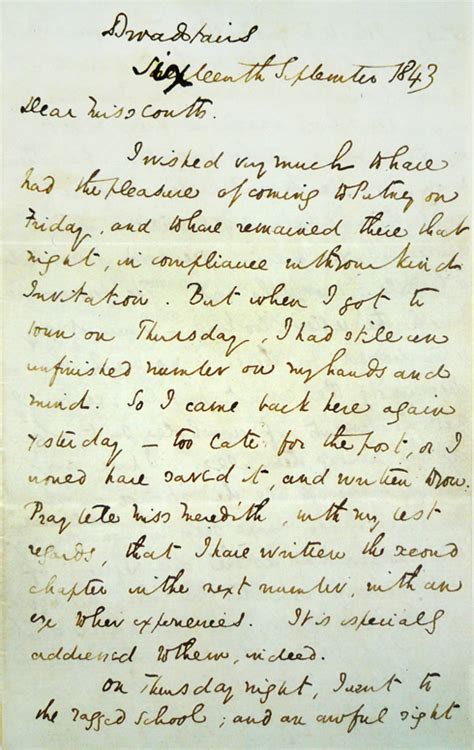 Broadstairs
Sixteenth September 1843
Dear Miss Coutts.
I wished very much to have
had the pleasure of coming to Putney on
Friday, and to have remained there that
night, in compliance with your kind
Invitation. But when I got to
town on Thursday, I had still an
unfinished number on my hands and
mind. So I came back here again
yesterday – too late for the post, or I
would have saved it, and written to you.
Pray tell Miss Meredith, with my best
regards, that I have written the second
chapter in the next number, with an
eye to her experiences. It is especially
addressed to them, indeed.
On Thursday night, I went to
the ragged school; and an awful sight